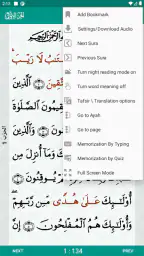 2:51
Add Bookmark
Settings/Download Audio
Next Sura
Previous Sura
Turn night reading mode on
Turn word meaning off
Tafsir \ Translation options
Go to Ayah
Go to page
Memorization By Typing
Memorization by Quiz
Full Screen Mode
ٱلَّذِينَ
ٱلصَّلَوٰةَ
وَٱلَّذِينَ
وَمَآ أُنزِلَ مِن
أُوْلَٰٓئِكَ عَلَىٰ هُدًى مِّن رَّبِّهِمْ
وَأُوْلَٰٓئِكَ هُمُ ٱلْمُفْلِحُونَ
NEXT
1 : 134
PREV